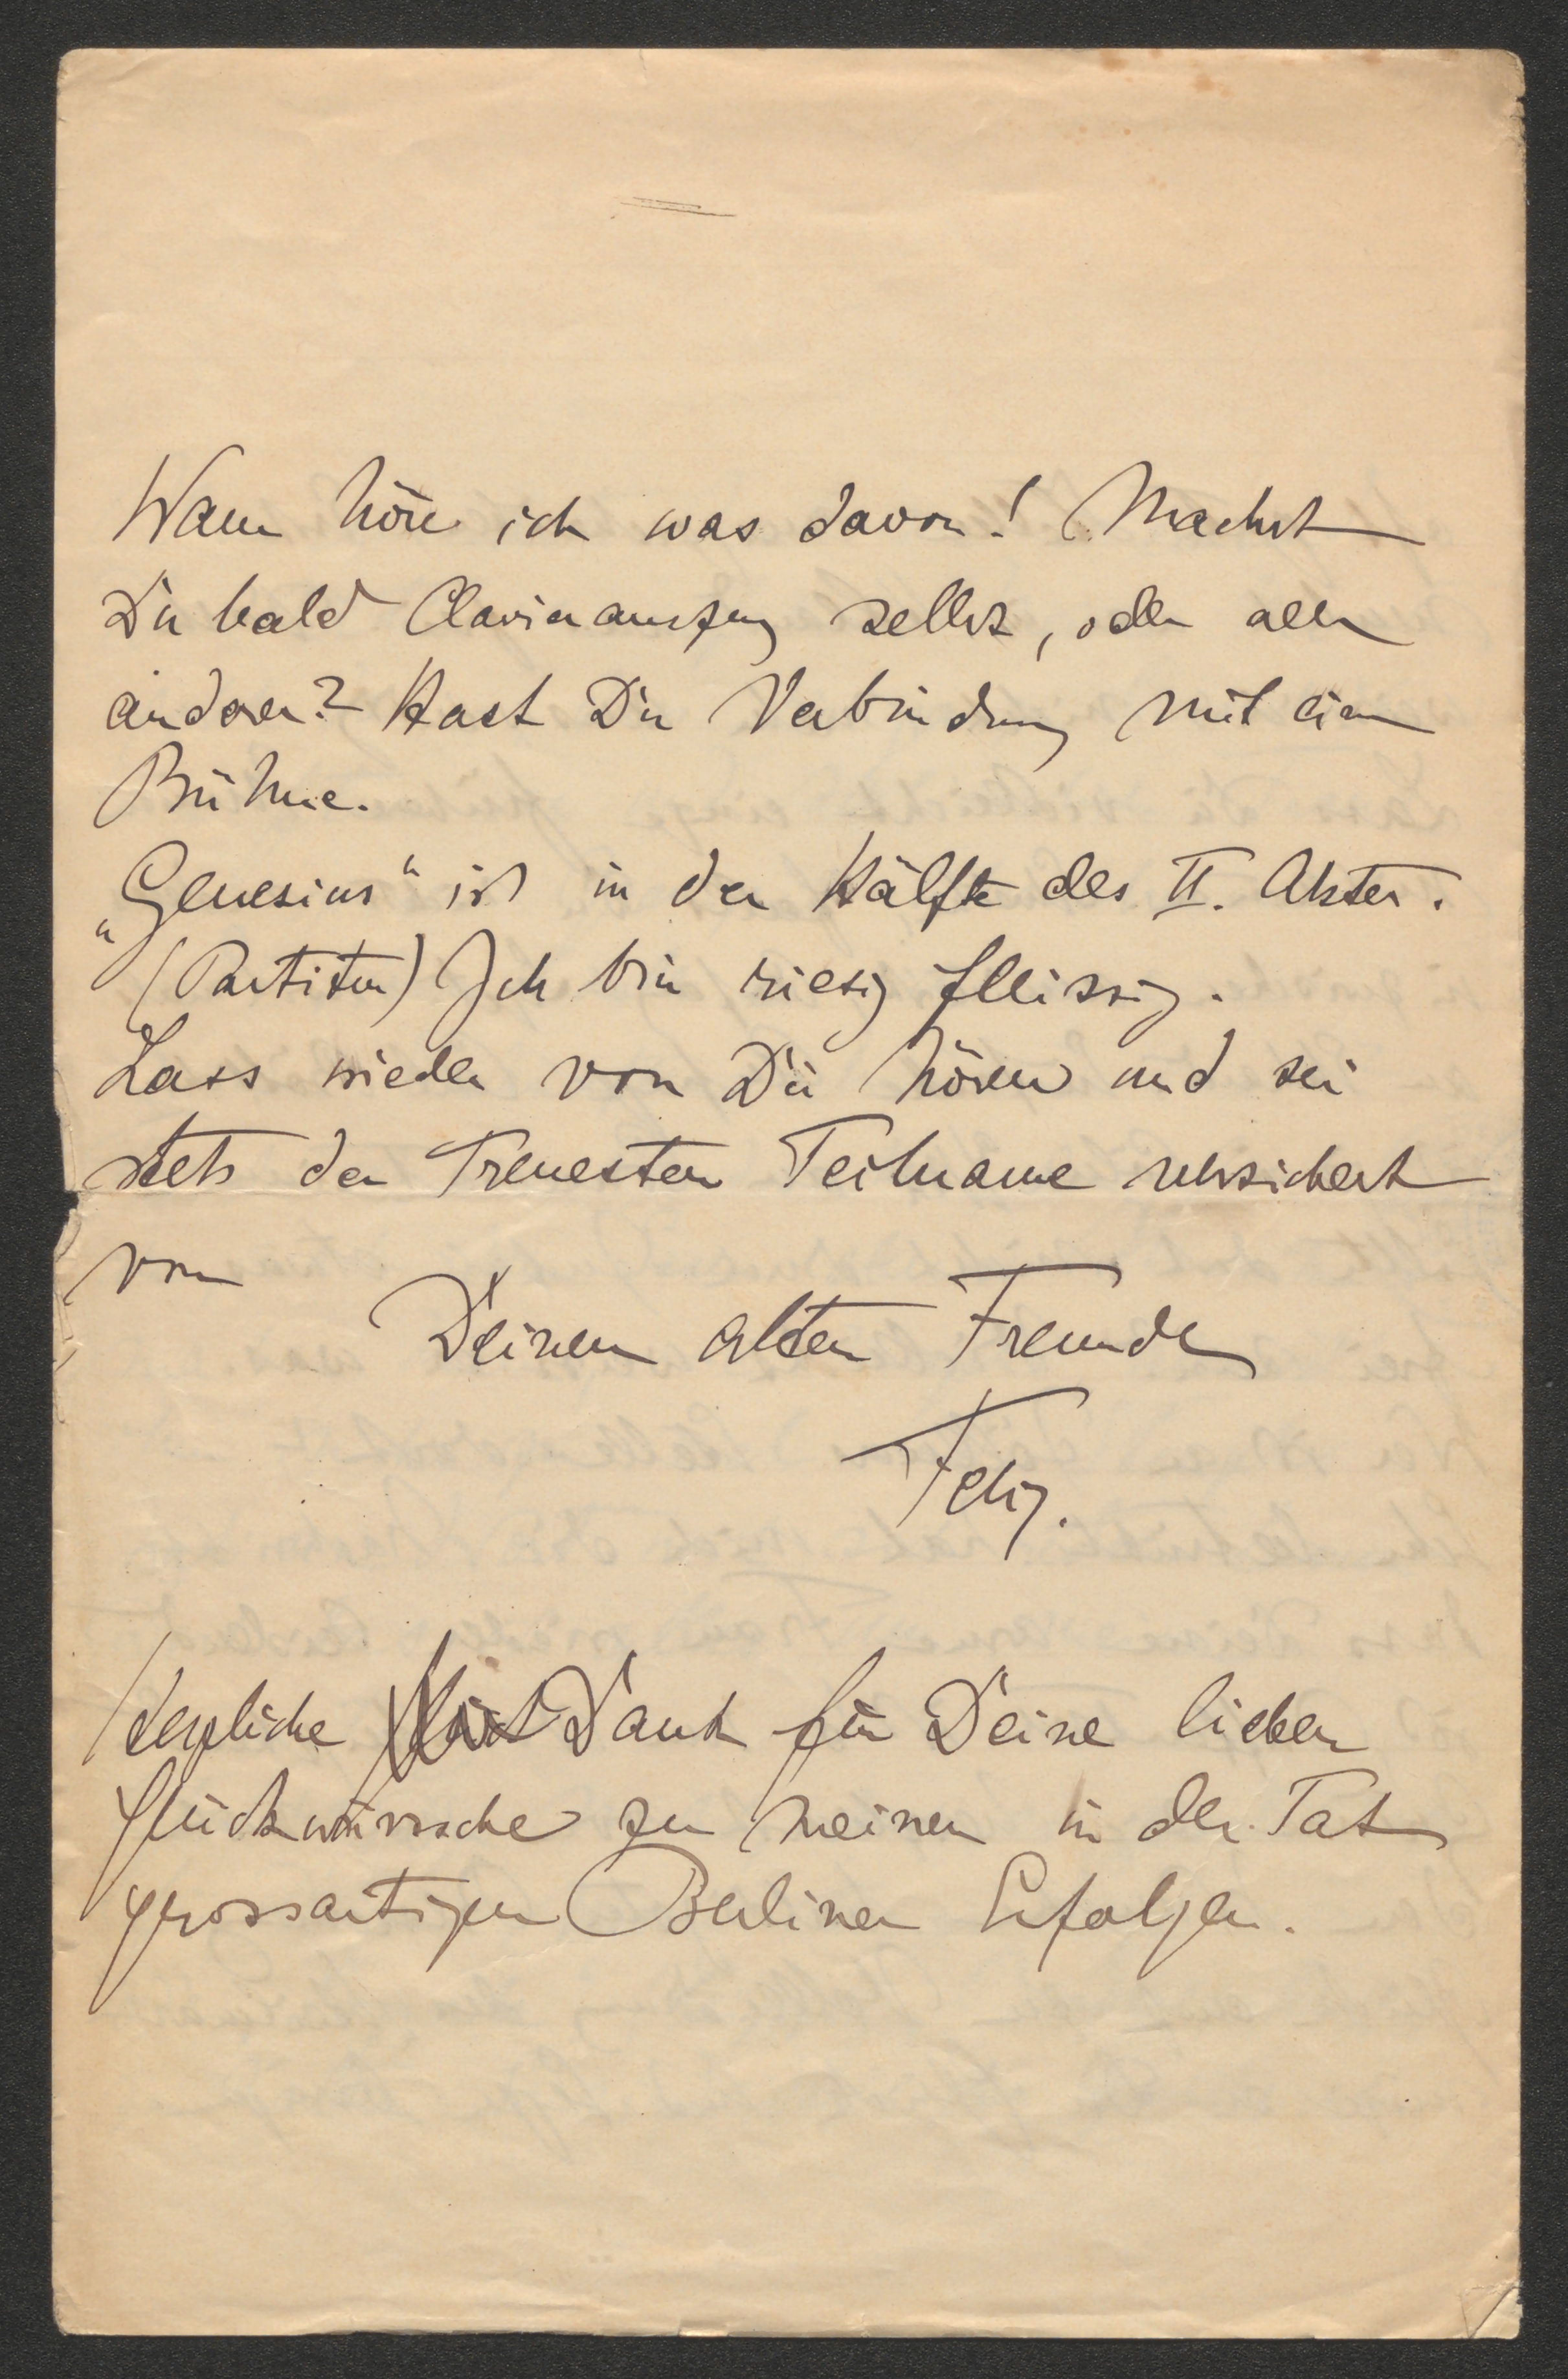 Wann höre ich was davon! Machst
Du bald Clavierauszug selbst, oder
anderer? Hast Du Verbindung mit einer
Bühne.
„Genesius“ ist in der Hälfte des II. Aktes.
(Partitur) Ich bin riesig fleissig.
Lass wieder von Dir hören und sei
stets der treuesten Teilname versichert
von
Deinem alten Freunde
Felix.
Herzliche Dank für Deine lieben
Glückwünsche zu meinen in der Tat
grossartigen Berliner Erfolgen.